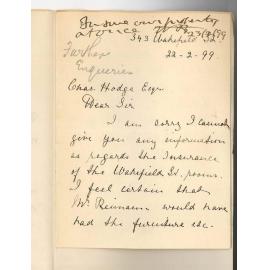 Insure our property
at once 23/2/99
343 Wakefield St
22-2-99.
Further
Enqueries
Chas. Hodge Esqr
Dear Sir
I am sorry I cannot
give you any information
as regards the Insurance
of the Wakefield St. rooms.
I feel certain that
Mr. Reimann would have
had the furniture etc.